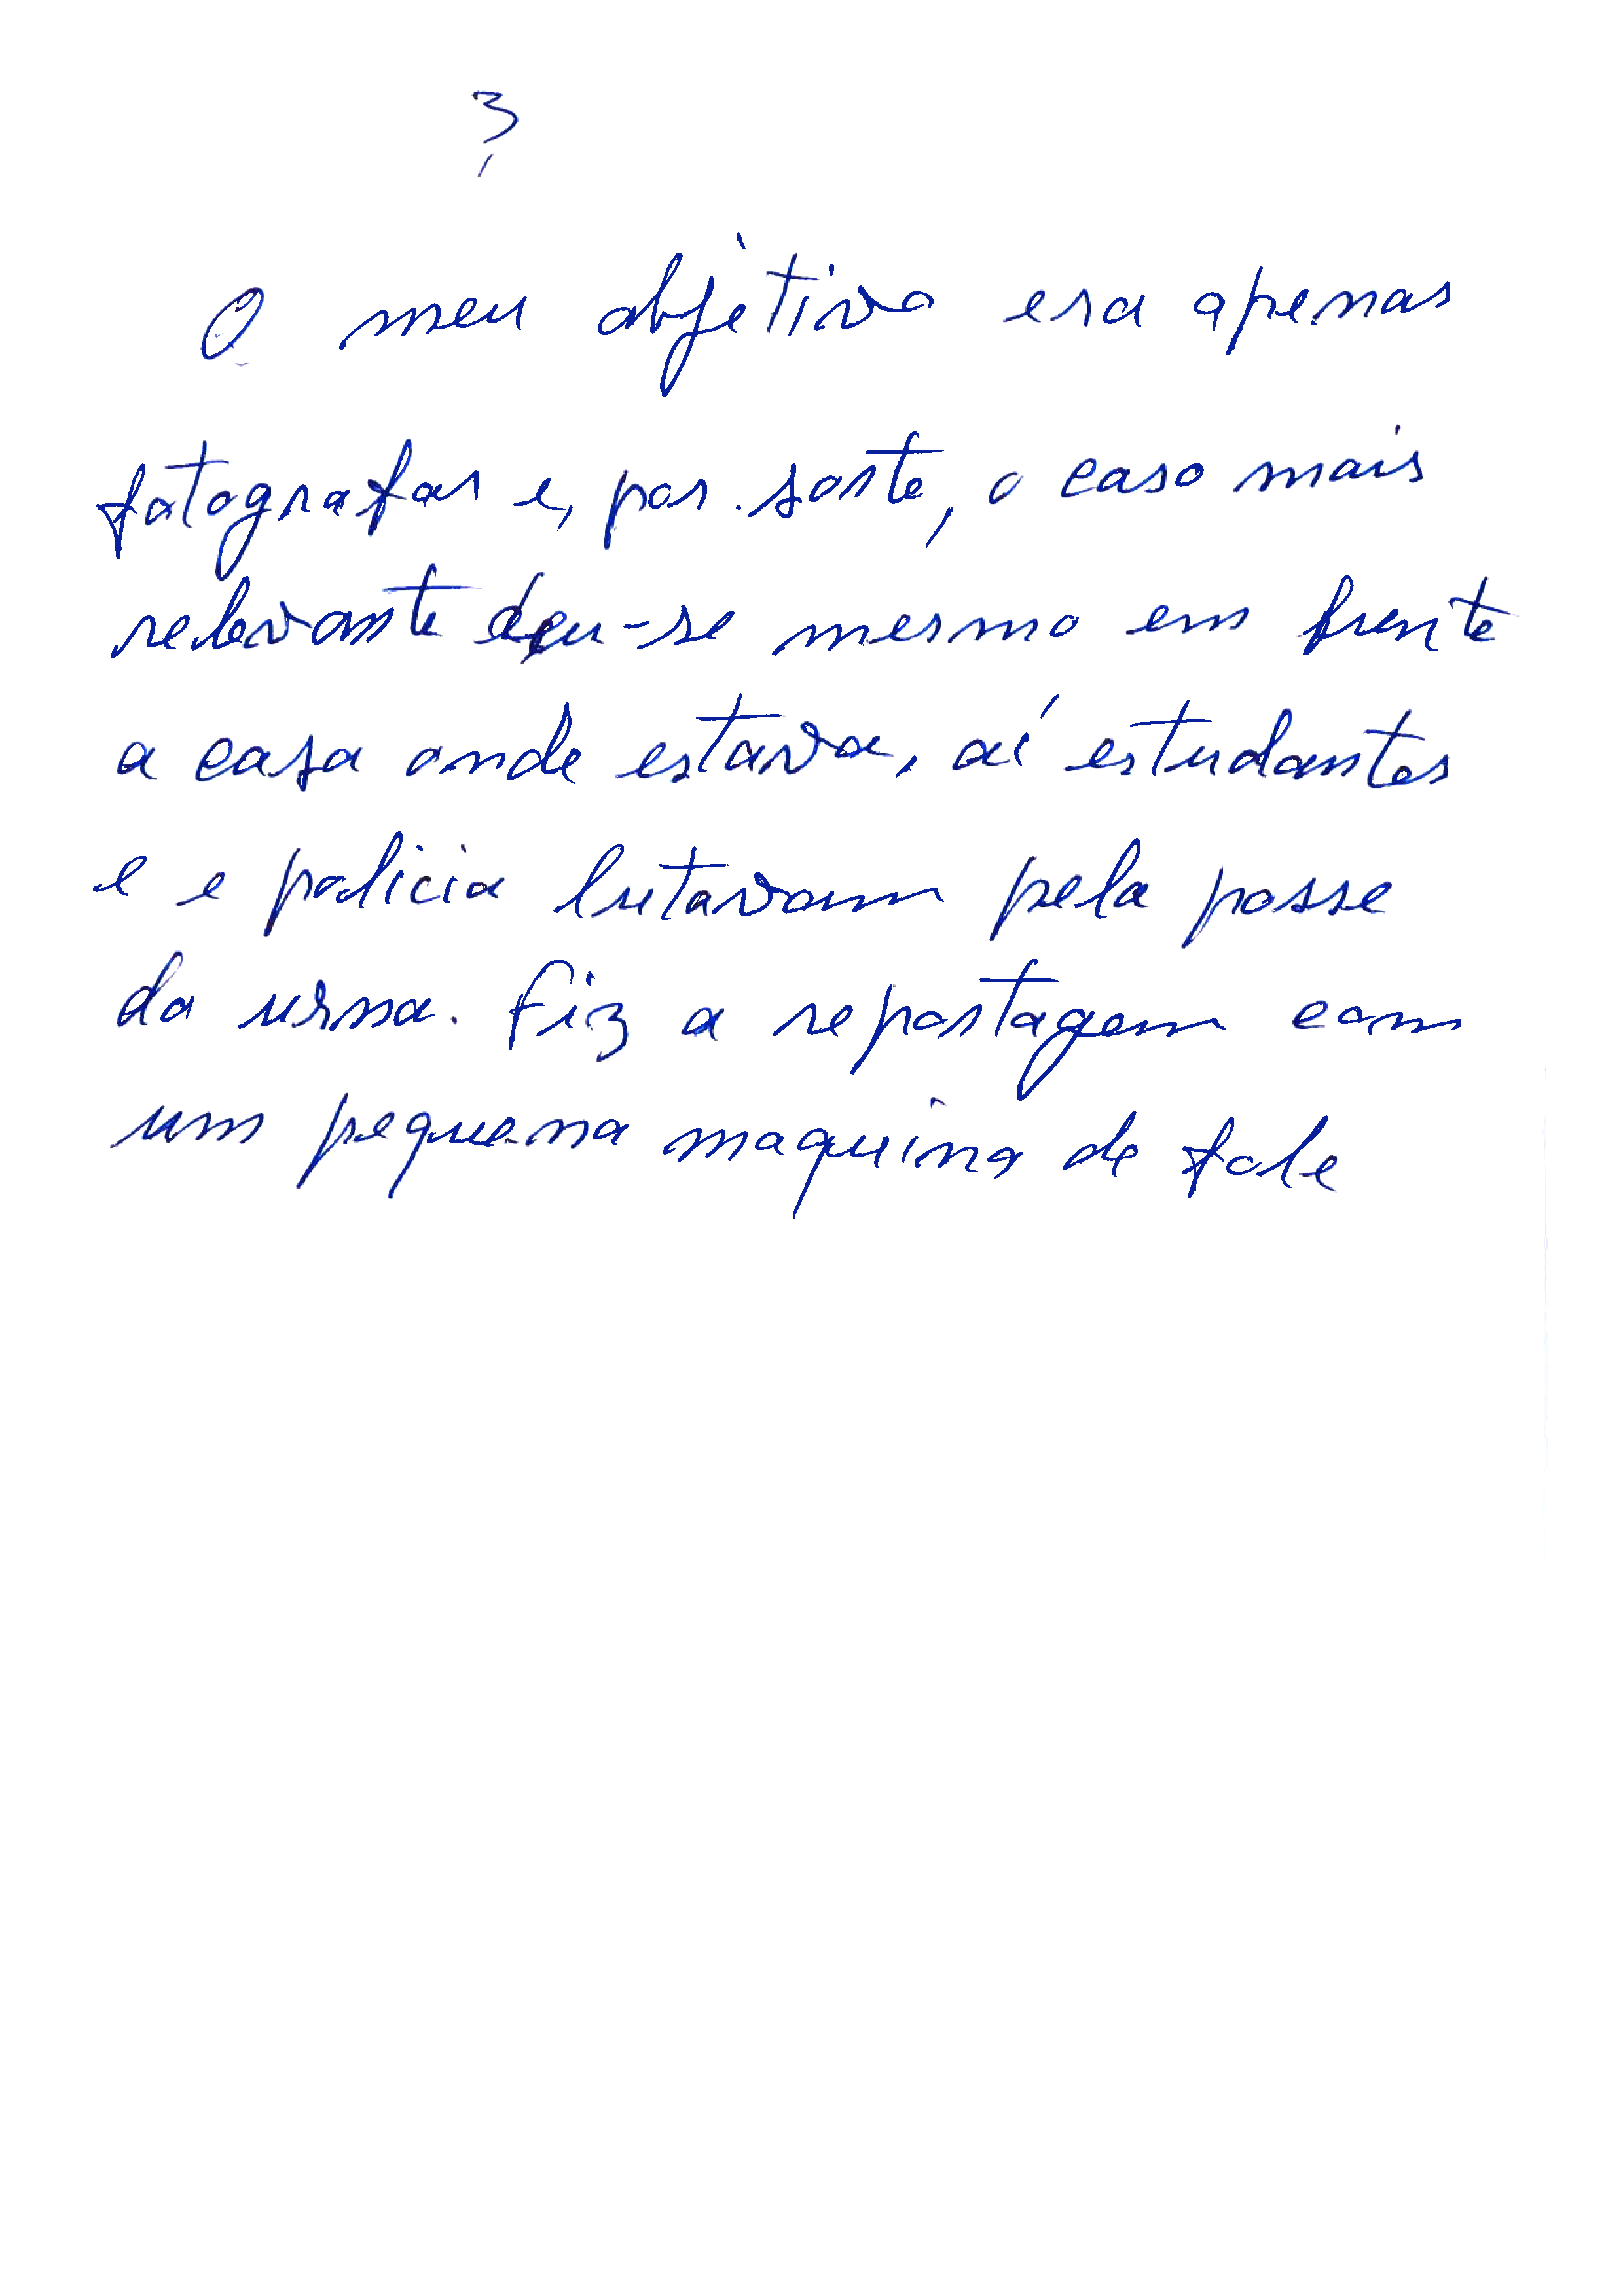 3
O meu objétivo era apenas
fotografar e, por sorte, o caso mais
relevante deu-se mesmo em frente
a casa onde estava, aí estudantes
e e policia lutavam pela posse
da urna. Fiz a reportagem com
um pequena maquina de fole